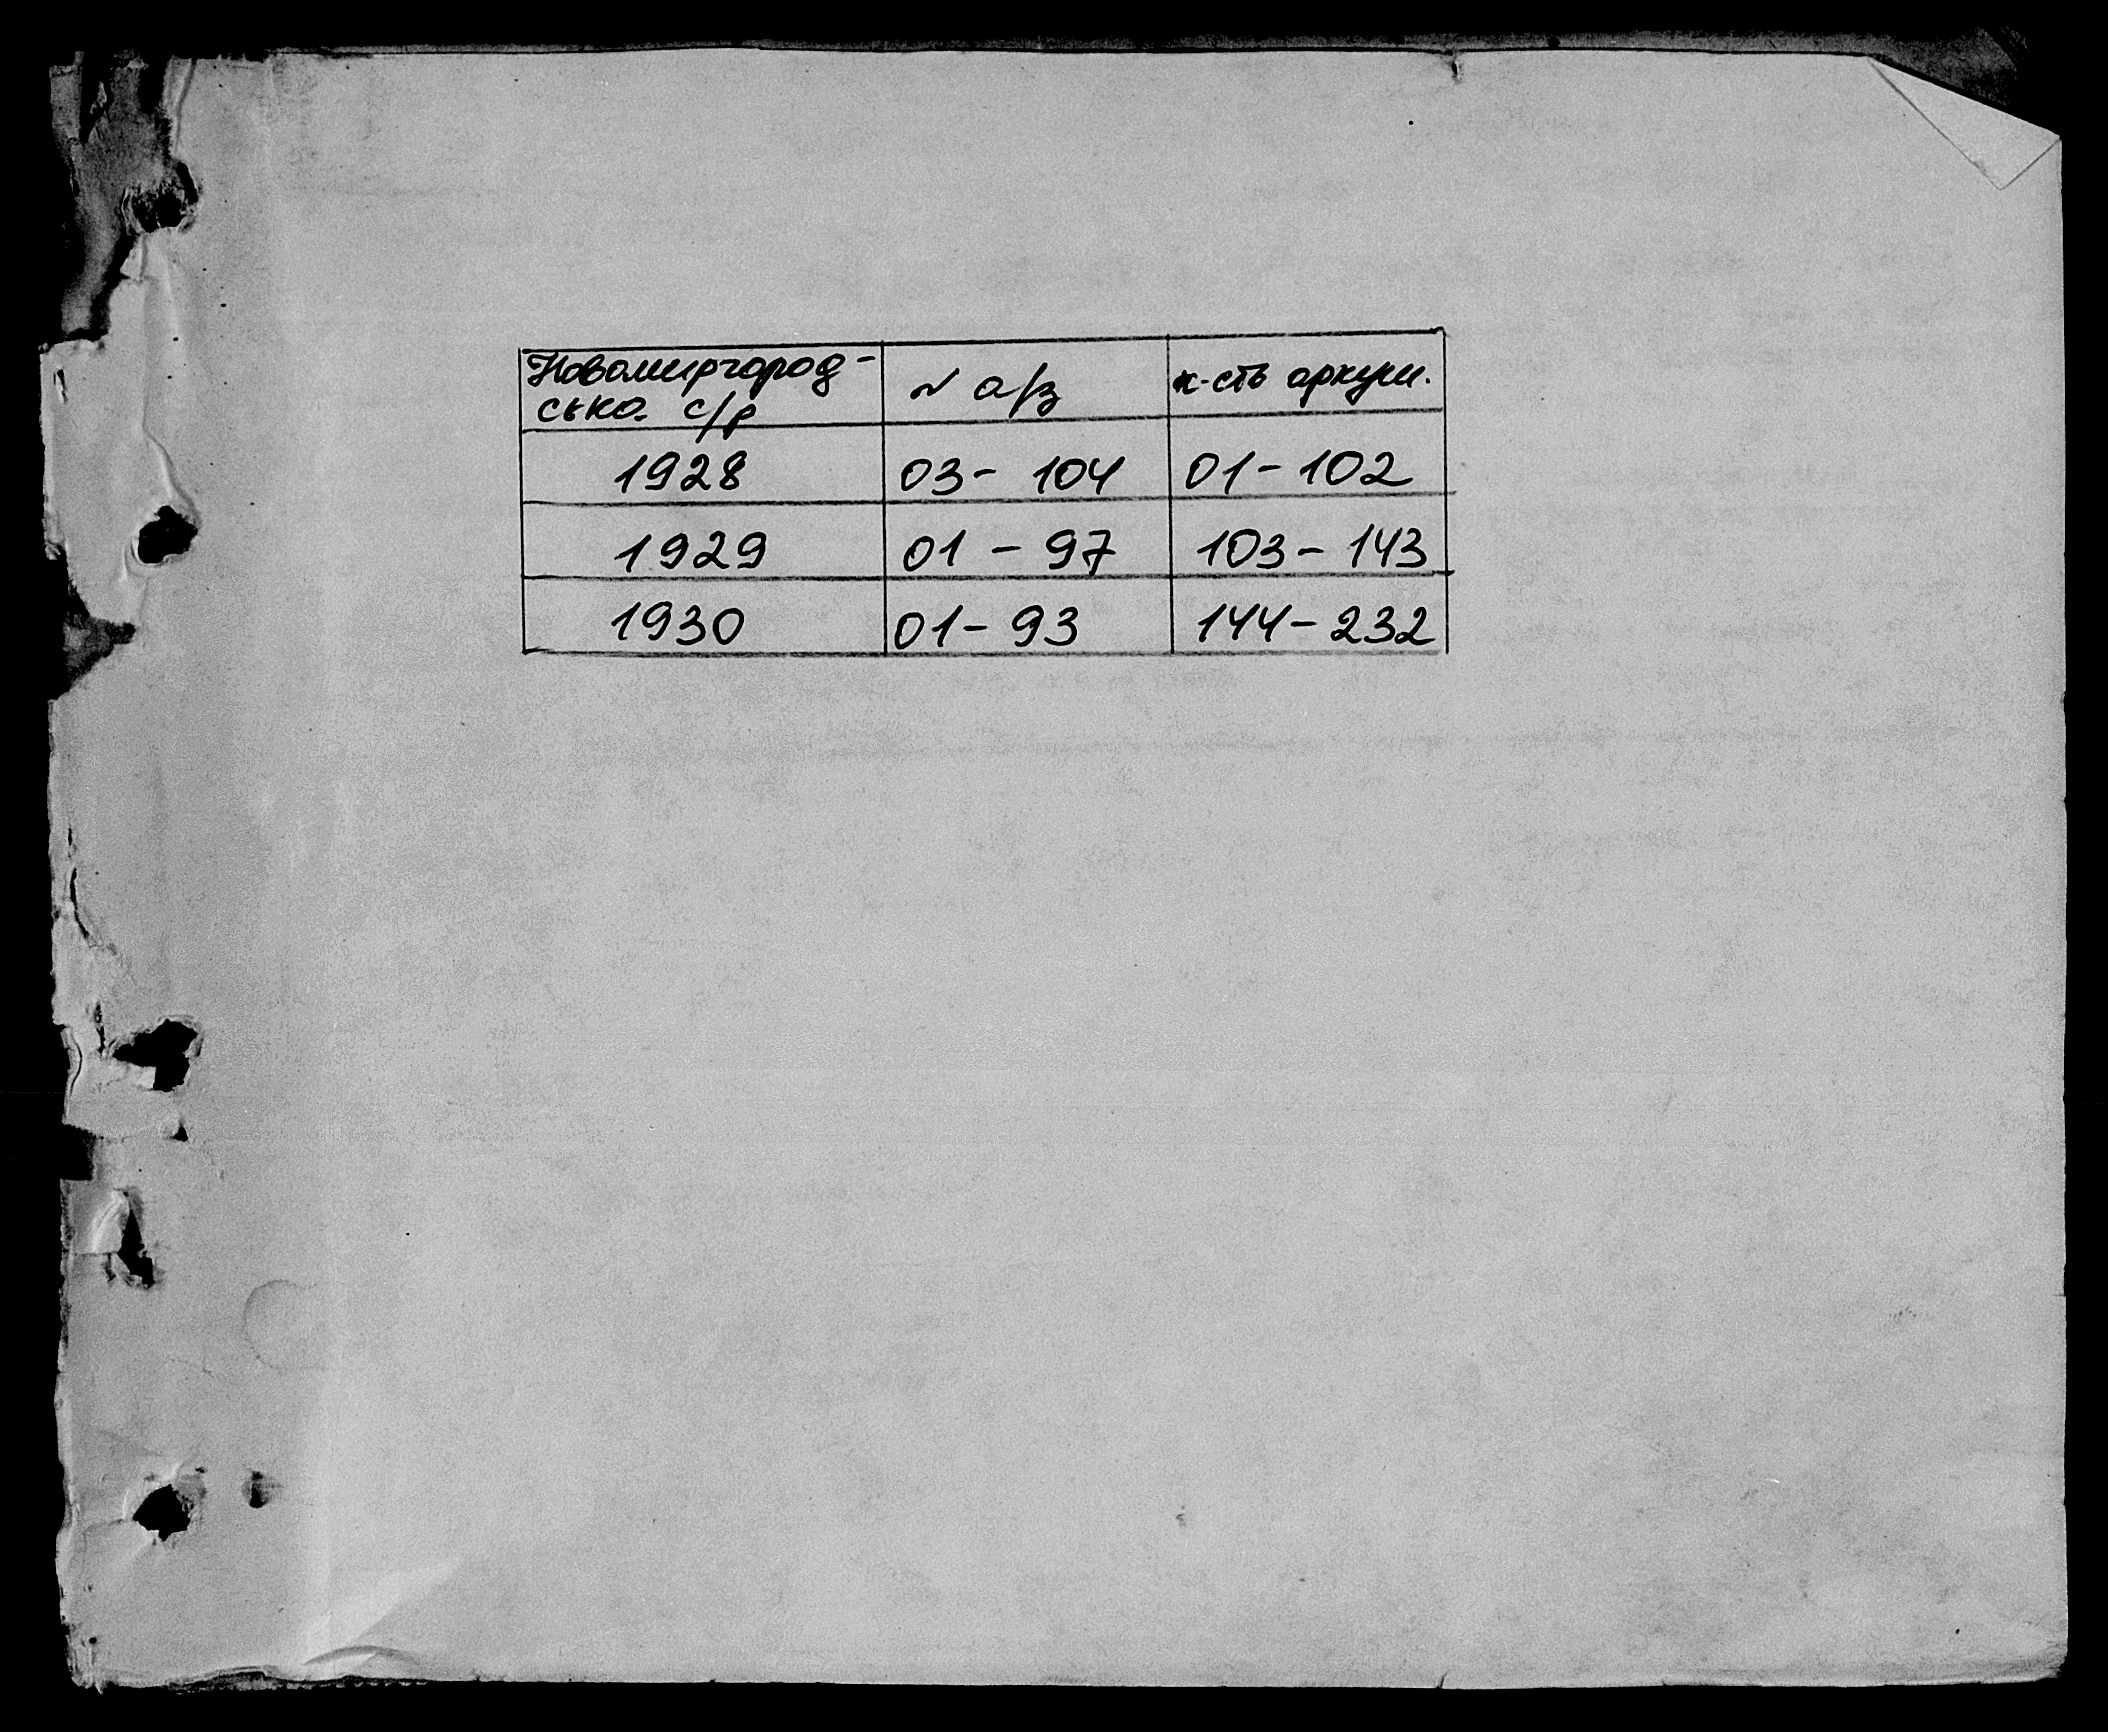 Новомиргород-
ська с/р
N а/з
к-сть аркуш.
1928 03- 104 01-102
1929 01 - 97 103-143
1930 01-93 144-232